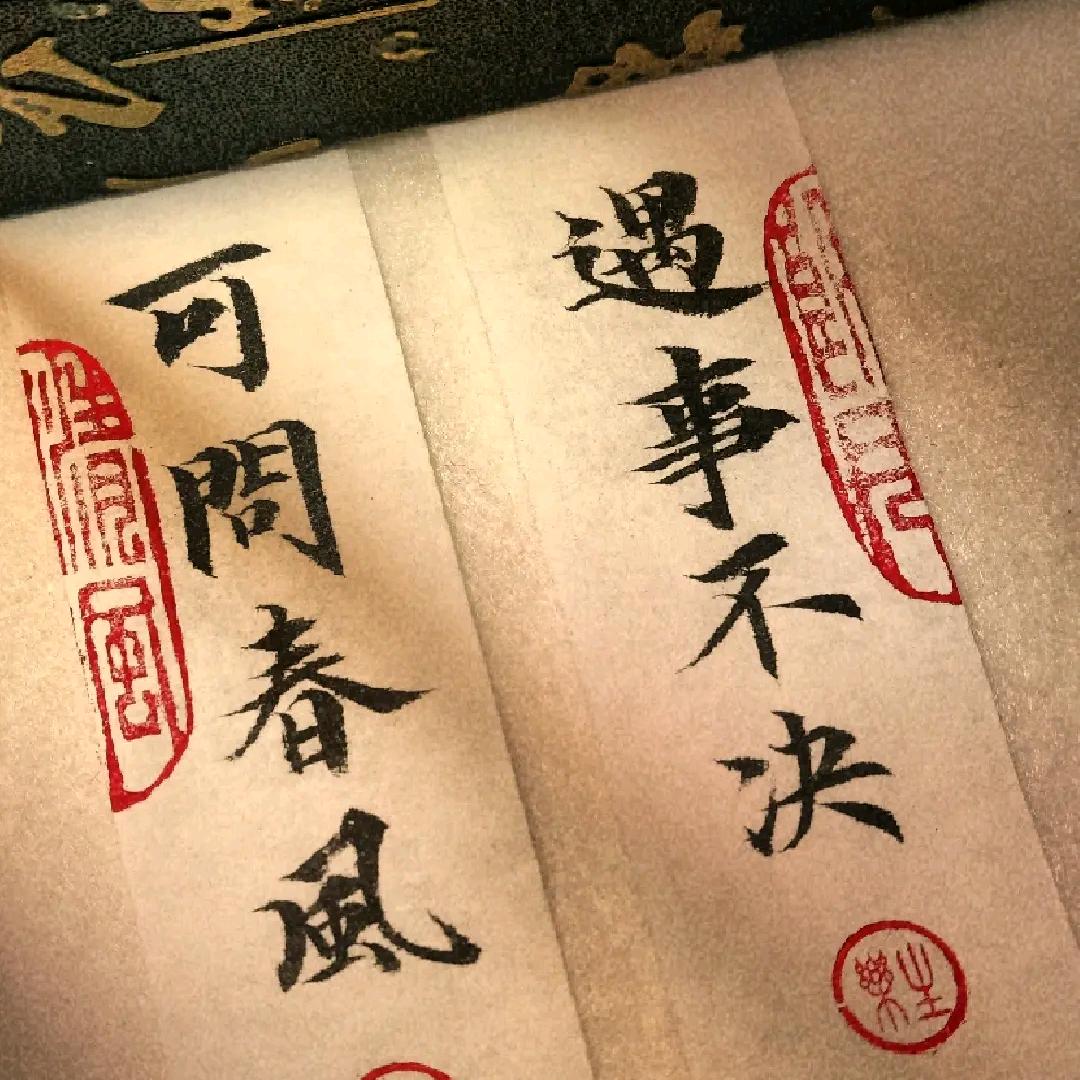 遇事不決
可問春風